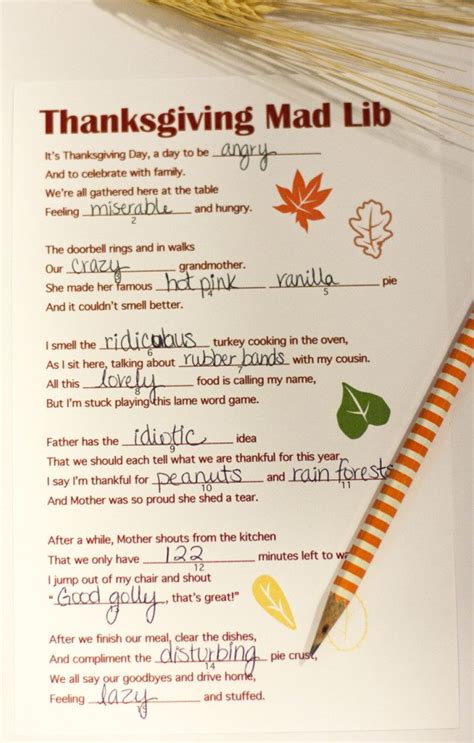 Thanksgiving Mad Lib
It's Thanksgiving Day, a day to be angry
And to celebrate with family.
We're all gathered here at the table
Feeling miserable and hungry.
2
The doorbell rings and in walks
Our crazy grandmother.
She made her famous hot pink vanilla pie
4 5
And it couldn't smell better.
I smell the ridiculous turkey cooking in the oven,
6
As I sit here, talking about rubber bands with my cousin.
7
All this lovely food is calling my name,
8
But I'm stuck playing this lame word game.
Father has the idiotic idea
9
That we should each tell what we are thankful for this year.
I say I'm thankful for peanuts and rain forests
10 11
And Mother was so proud she shed a tear.
After a while, Mother shouts from the kitchen
That we only have 122 minutes left to
12
I jump out of my chair and shout
"Good golly, that's great!"
After we finish our meal, clear the dishes,
And compliment the disturbing pie crust,
14
We all say our goodbyes and drive home,
Feeling lazy and stuffed.
15